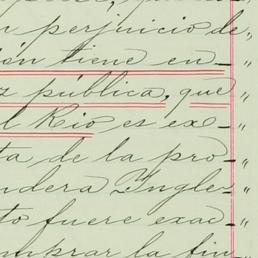 n perjuicio de „
ión tiene en— „
z pública, que „
l Rio es ex— „
ta de la pro— „
ndera Ingle— „
to fuere exac— „
mprar la fin— „